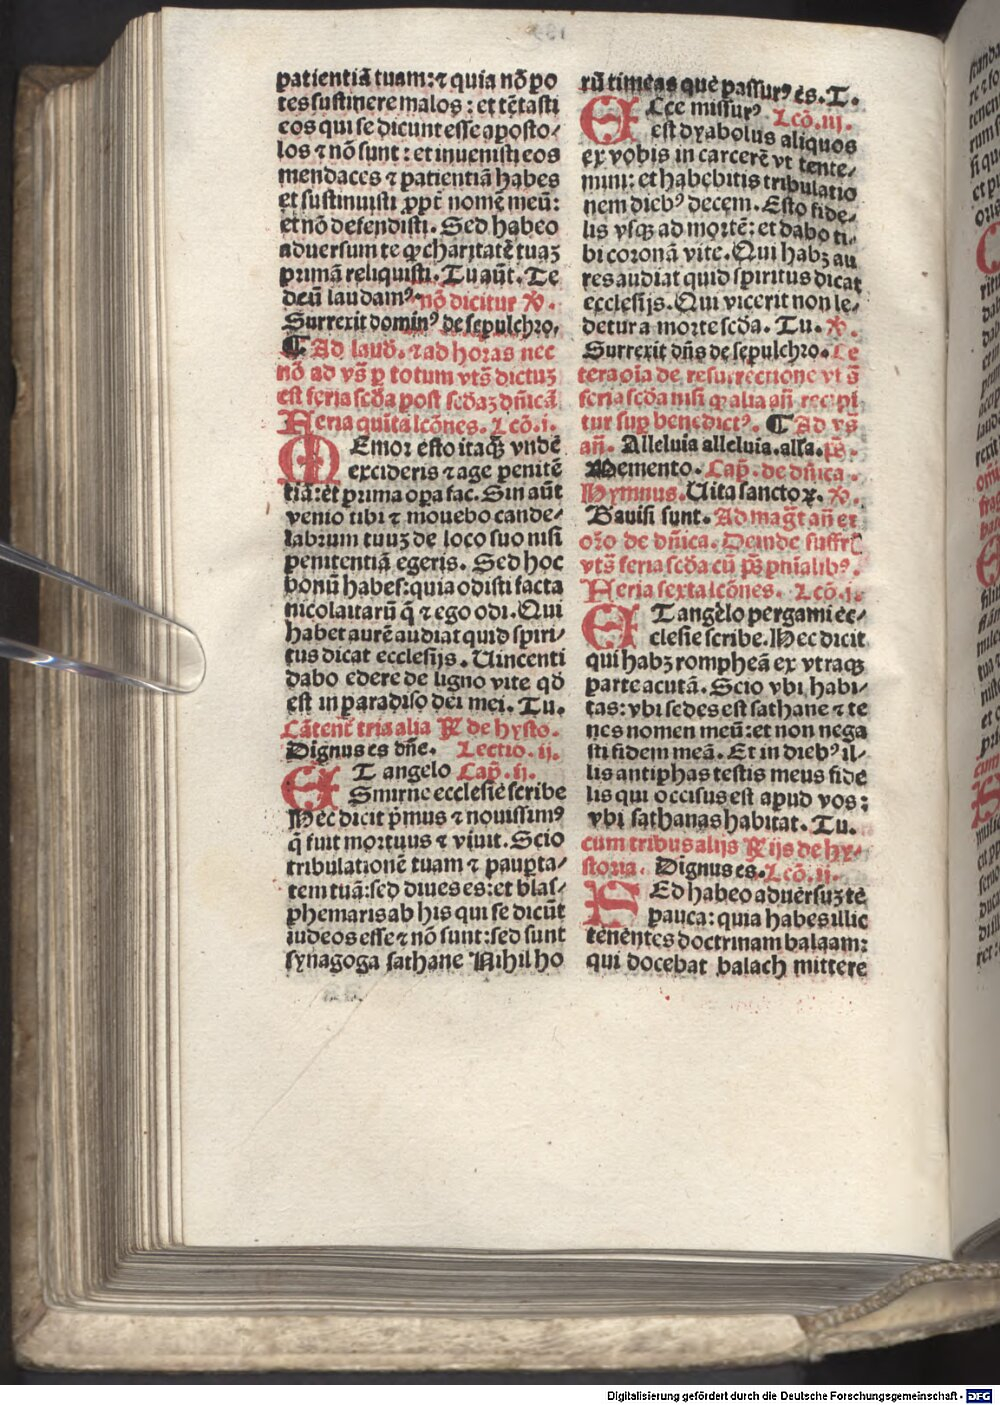 patientiã tuam: ⁊ quia nõ po
tes sustinere malos: et tẽtasti
eos qui se dicunt esse aposto⸗
los ⁊ nõ sunt: et inuenisti eos
mendaces ⁊ patientiã habes
et sustinuisti ꝓpt̃ nomẽ meũ:
et nõ defendisti. Sed habeo
aduersum te ꝙ charitatẽ tuaꝫ
primã reliquisti. Tu aũt. Te
deũ laudamꝰ nõ dicitur ℣.
Surrexit dominꝰ de sepulchro.
¶ Ad laud̃. ⁊ ad horas nec
nõ ad vs̃ ꝑ totum vts̃ dictuꝫ
est feria scďa post scďaꝫ dñicã
Feria quĩta lcõnes. Lcõ.i.
MEmor esto itaqꝫ vnde
excideris ⁊ age penitẽ
tiã: et prima oꝑa fac. Sin aũt
venio tibi ⁊ mouebo cande⸗
labrum tuuꝫ de loco suo nisi
penitentiã egeris. Sed hoc
bonũ habes: quia odisti facta
nicolaitarũ q̃ ⁊ ego odi. Qui
habet aurẽ audiat quid spiri⸗
tus dicat ecclesijs. Uincenti
dabo edere de ligno vite qď
est in paradiso dei mei. Tu.
Cãtent̃ tria alia ℟ de hysto.
Dignus es dñe. Lectio.ij.
ET angelo Cap̃.ij.
Smirne ecclesie scribe
Hec dicit pĩmus ⁊ nouissimꝰ
q̃ fuit mortuus ⁊ viuit. Scio
tribulationẽ tuam ⁊ pauꝑta⸗
tem tuã: sed diues es: et blas⸗
phemaris ab his qui se dicũt
iudeos esse ⁊ nõ sunt: sed sunt
synagoga sathane Nihil ho
rũ timeas que passurꝰ es. T.
ECce missurꝰ Lcõ.iij.
est dyabolus aliquos
ex vobis in carcerẽ vt tente⸗
mini: et habebitis tribulatio
nem diebꝰ decem. Esto fide⸗
lis vsqꝫ ad mortẽ: et dabo ti⸗
bi coronã vite. Qui habꝫ au
res audiat quid spiritus dicat
ecclesijs. Qui vicerit non le⸗
detur a morte scďa. Tu. ℣.
Surrexit dñs de sepulchro. Ce
tera oĩa de resurrectione vt s̃
feria scďa nisi ꝙ alia añ recipi
tur suꝑ benedictꝰ. ¶ Ad vs̃
añ. Alleluia alleluia. alľa. ps̃.
Memento. Cap̃. de dñica.
Hymnus. Uita sanctoꝝ. ℣.
Gauisi sunt. Ad mag̃t añ et
oř̃o de dñica. Deinde suffrˀ
vts̃ feria scďa cũ ps̃ pñialibꝰ.
Feria sexta lcõnes. Lcõ.i.
ET angelo pergami ec⸗
clesie scribe. Hec dicit
qui habꝫ rompheã ex vtraqꝫ
parte acutã. Scio vbi habi⸗
tas: vbi sedes est sathane ⁊ te
nes nomen meũ: et non nega
sti fidem meã. Et in diebꝰ il⸗
lis antiphas testis meus fide
lis qui occisus est apud vos:
vbi sathanas habitat. Tu.
cum tribus alijs ℟ijs de hy⸗
storia. Dignus es. Lcõ.ij.
SEd habeo aduersuꝫ te
pauca: quia habes illic
tenentes doctrinam balaam:
qui docebat balach mittere
Digitalisierung gefördert durch die Deutsche Forschungsgemeinschaft - DFG